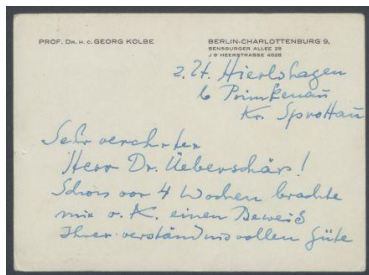 PROF. DR. H. C. GEORG KOLBE
BERLIN-CHARLOTTENBURG 9,
SENSBURGER ALLEE 26
J 9 HEERSTRASSE 4528
z. Zt. Hierlshagen
b Primkenau
Kr. Sprottau
Sehr verehrter
Herr Dr. Ueberschär!
Schon vor 4 Wochen brachte
mir v. K. einen Beweis
Ihrer verständnisvollen Güte